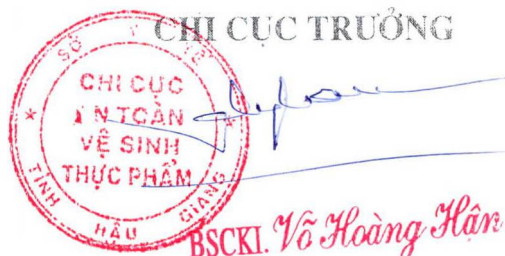 CHI CỤC TRƯỞNG
SỞ Y TẾ
CHI CỤC
AN TOÀN
VỆ SINH
THỰC PHẨM
TỈNH HẬU GIANG
BSCKI. Võ Hoàng Hận